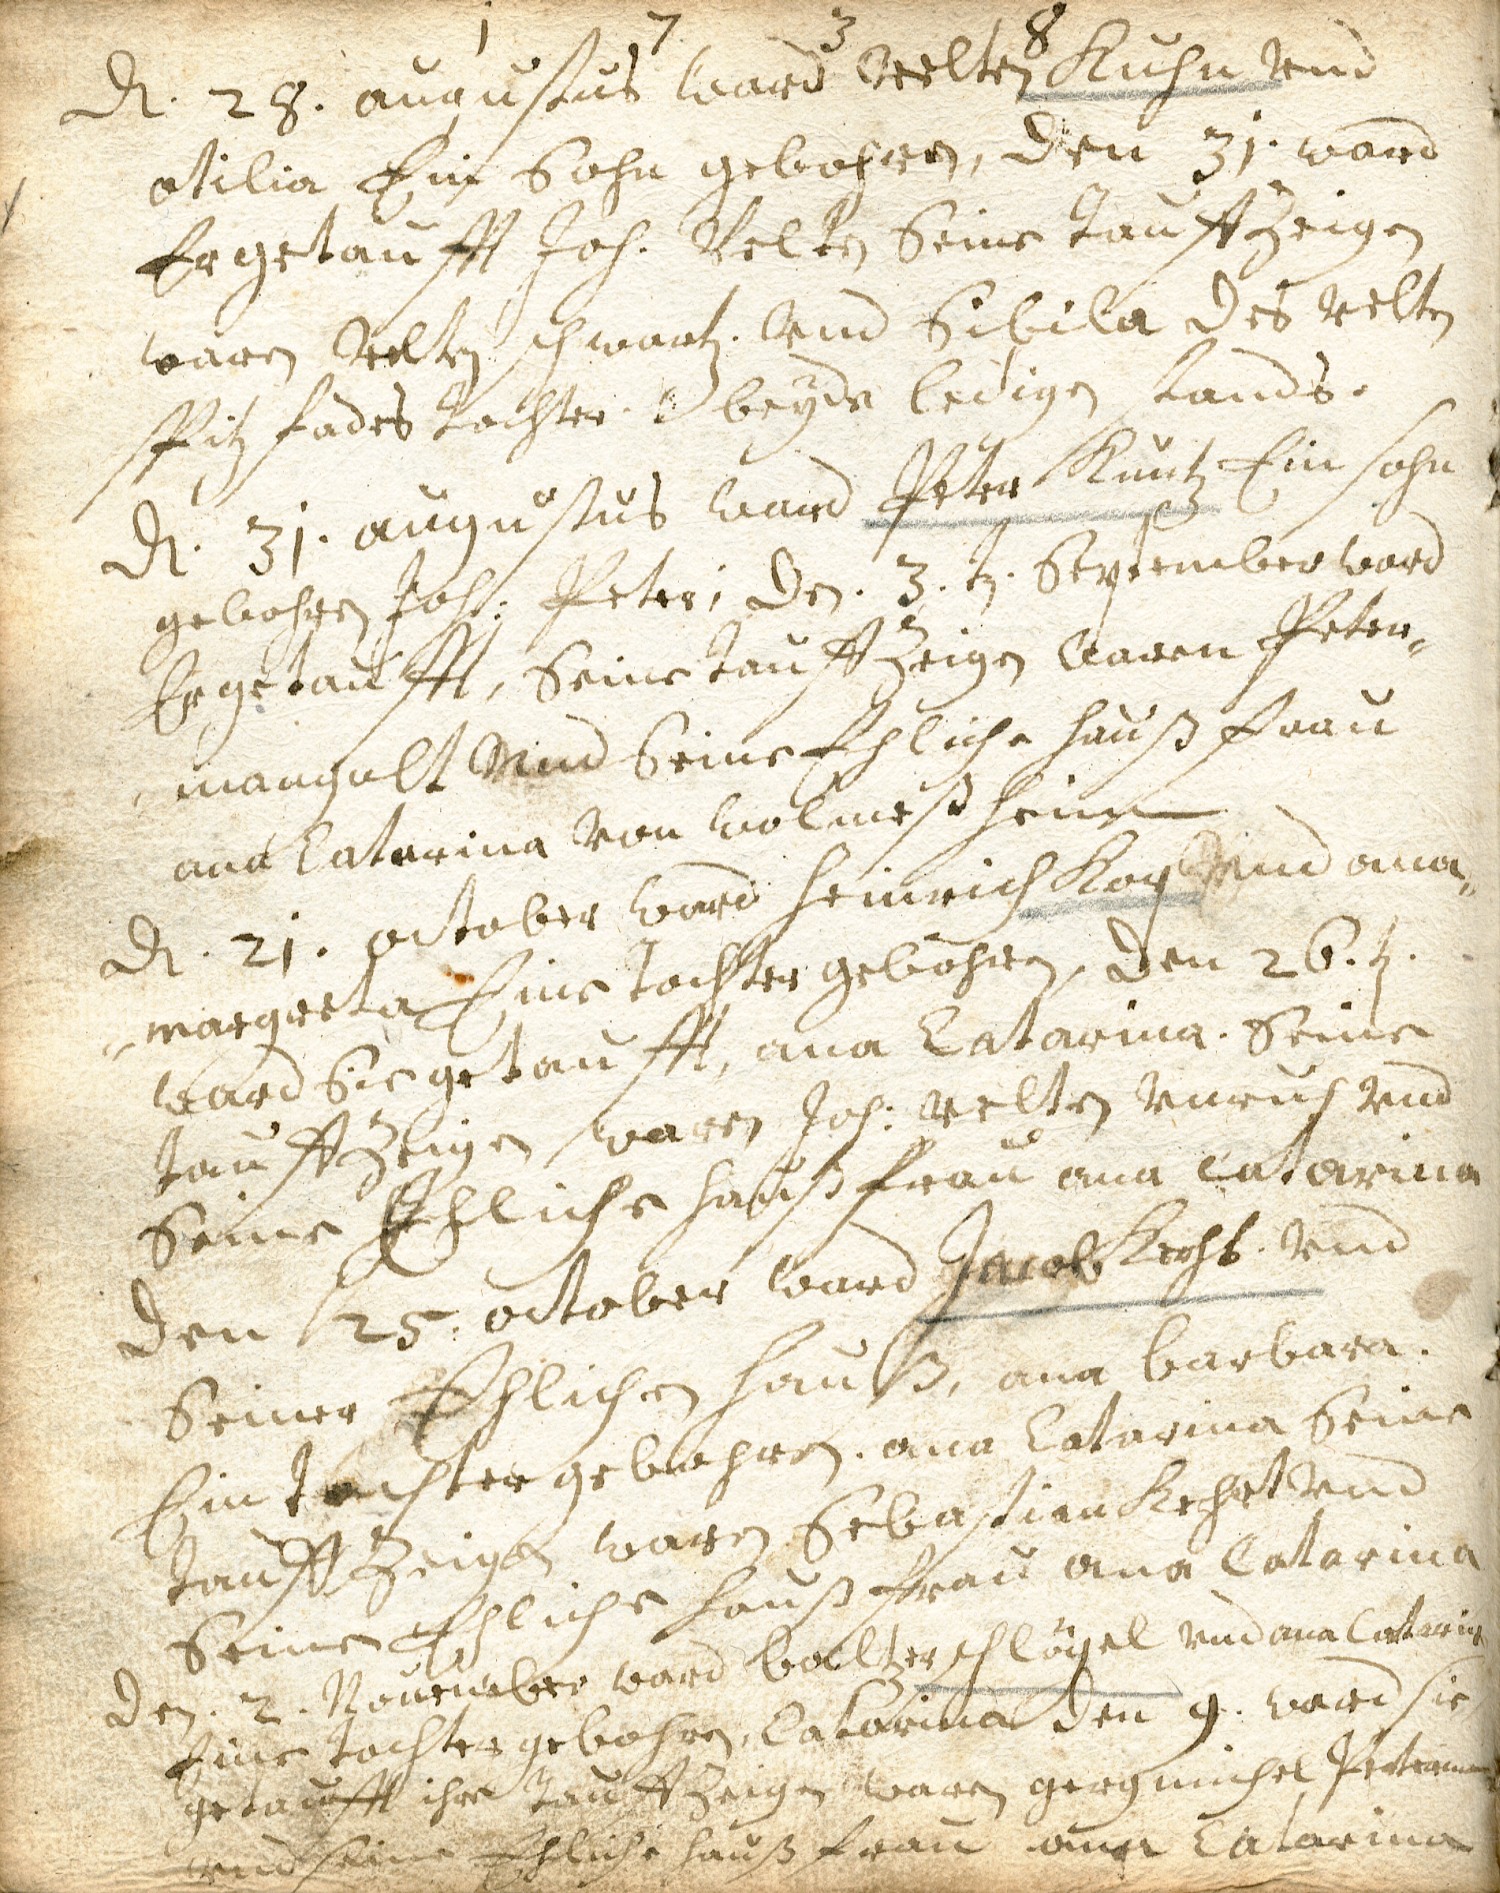 1 7 3 8
D. 28. augustus ward Velten Kuhn vnd
otilia Ein Sohn gebohren, den 31. ward
Er getaufft Joh. Velten Seine tauffzeigen
waren Velten schwartz. vnd Sibila des velten
spitz fades tochter. beyde ledigen stands.
D. 31. augustus ward Peter Kuntz Ein sohn
gebohren Joh: Peter, den. 3. tz. September ward
Er getaufft, Seine tauffzeigen waren Peter
mangolt vnd Seine Ehliche hauß frau
ana Catarina von wolmeßheim
D. 21. october ward heinrich vnd ana
margreta Eine tochter gebohren, den 26. tz.
ward Sie getaufft, ana Catarina. Seine
tauffzeigen waren Joh: velten vnruh vnd
Seine Ehliche hauß frau ana Catarina
den 25. october ward Jacob vnd
Seiner Ehlichen hauß, ana barbara.
Ein tochter gebohren. ana Catarina Seine
tauffzeigen waren Sebastian vnd
Seine Ehliche hauß frau ana Catarina
den. 2. November ward baltzer schlögel vnd ana Catarina
Eine tochter gebohren, Catarina den 9. ward sie
getaufft ihre tauffzeigen waren gergmichel
vnd seine Ehliche hauß frau ana Catarina